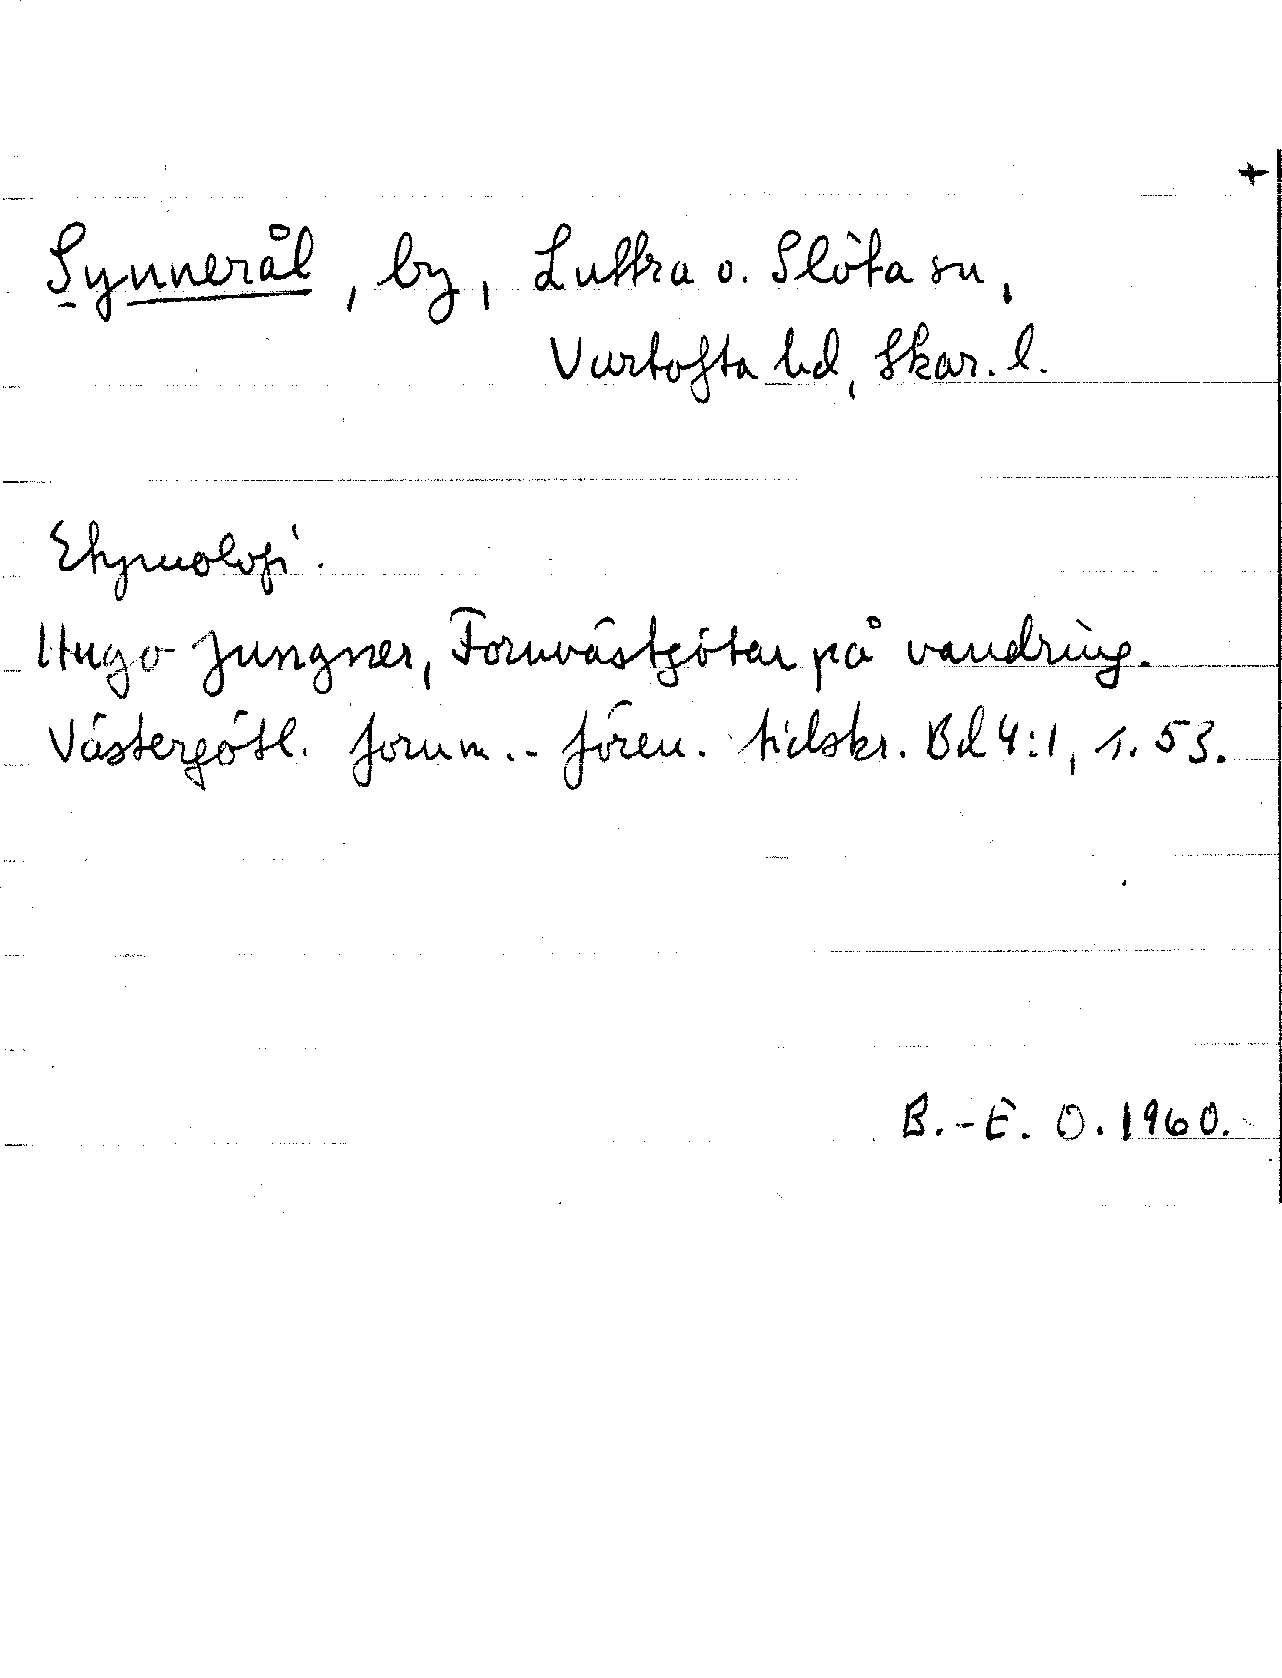 +
Synnerål, by, Luttra o. Slöta sn,
Vartofta hd, Skar. l.
Etymologi.
Hugo Jungner, Fornvästgötar på vandring.
Västergötl. fornm.-fören. tidskr. Bd 4:1, s. 53.
B.-E. O. 1960.